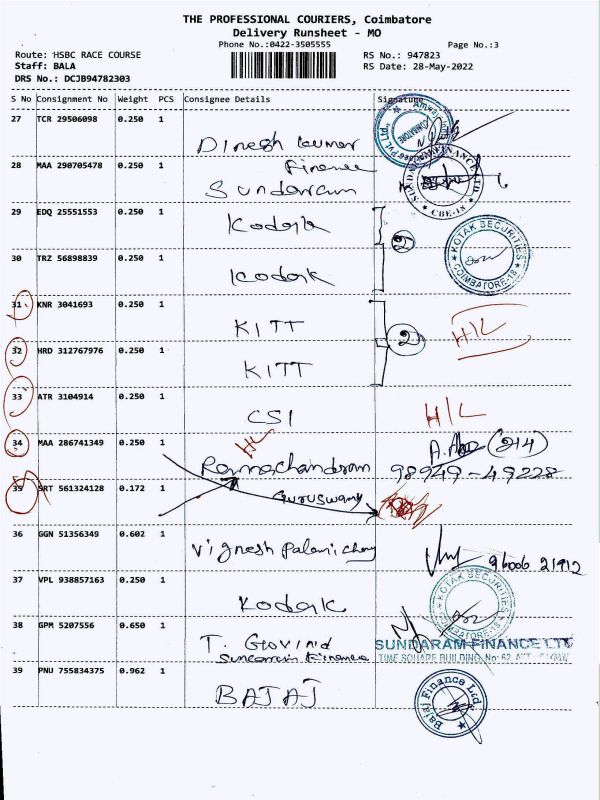 THE PROFESSIONAL COURIERS, Coimbatore
Delivery Runsheet - MO
Phone No.:0422-3505555
Page No.:3
Route: HSBC RACE COURSE
RS No.: 947823
Staff: BALA
RS Date: 28-May-2022
DRS No.: DCJB94782303
S No Consignment No Weight PCS Consignee Details Signature
27 TCR 29506098 0.250 1
Dinesh Kumar
28 MAA 290705478 0.250 1
Finance
Sundaram
SUNDARAM FINANCE LTD
CBE-18
29 EDQ 25551553 0.250 1
Kodak
2
KOTAK SECURITIES
COIMBATORE-18
30 TRZ 56898839 0.250 1
Kodak
31 KNR 3041693 0.250 1
KITT
2
H/L
32 HRD 312767976 0.250 1
KITT
33 ATR 3104914 0.250 1
CSI
H/L
34 MAA 286741349 0.250 1
H/L
Ramachandram
(214)
98949-49228
35 SRT 561324128 0.172 1
Guruswamy
36 GGN 51356349 0.602 1
Vignesh Palanichamy
96006 21912
37 VPL 938857163 0.250 1
Kodak
KOTAK SECURITIES
COIMBATORE-18
38 GPM 5207556 0.650 1
T. Govind
Sundaram Finance
SUNDARAM FINANCE LTD
TIME SQUARE BUILDING, No: 62,
39 PNU 755834375 0.962 1
BAJAJ
Bajaj Finance Ltd.